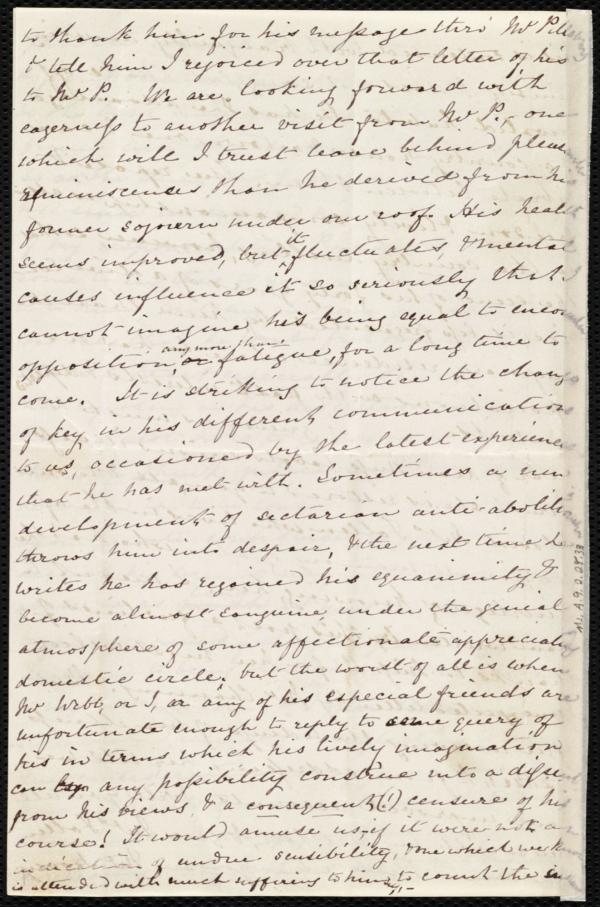 to thank him for his message thro' Mr Pills
& tell him I rejoiced over that letter of his
to Mr P. We are looking forward with
eagerness to another visit from Mr P., - one
which will I trust leave behind pleas
reminiscences than he derived from his
former sojourn under our roof. His heal
seems improved, but it fluctuates, & mental
causes influence it so seriously that I
cannot imagine his being equal to encou
opposition, any more than fatigue, for a long time to
come. It is striking to notice the change
of key in his different communications
to us, occasioned by the latest experience
that he has met with. Sometimes a new
development of sectarian anti-aboliti
throws him into despair, & the next time he
writes he has regained his equanimity &
become almost sanguine, under the genial
atmosphere of some affectionate appreciat
domestic circle. but the worst of all is when
Mr Webb, or I, or any of his especial friends are
unfortunate enough to reply to some query of
his in terms which his lively imagination
can by any possibility construe into a disse
from his views & a consequent (!) censure of his
course! It would amuse us, if it were not an
indication of undue sensibility, & one which we know
is attended with much suffering to him, - to count the
Ms. A. 9. 2. 28. 33